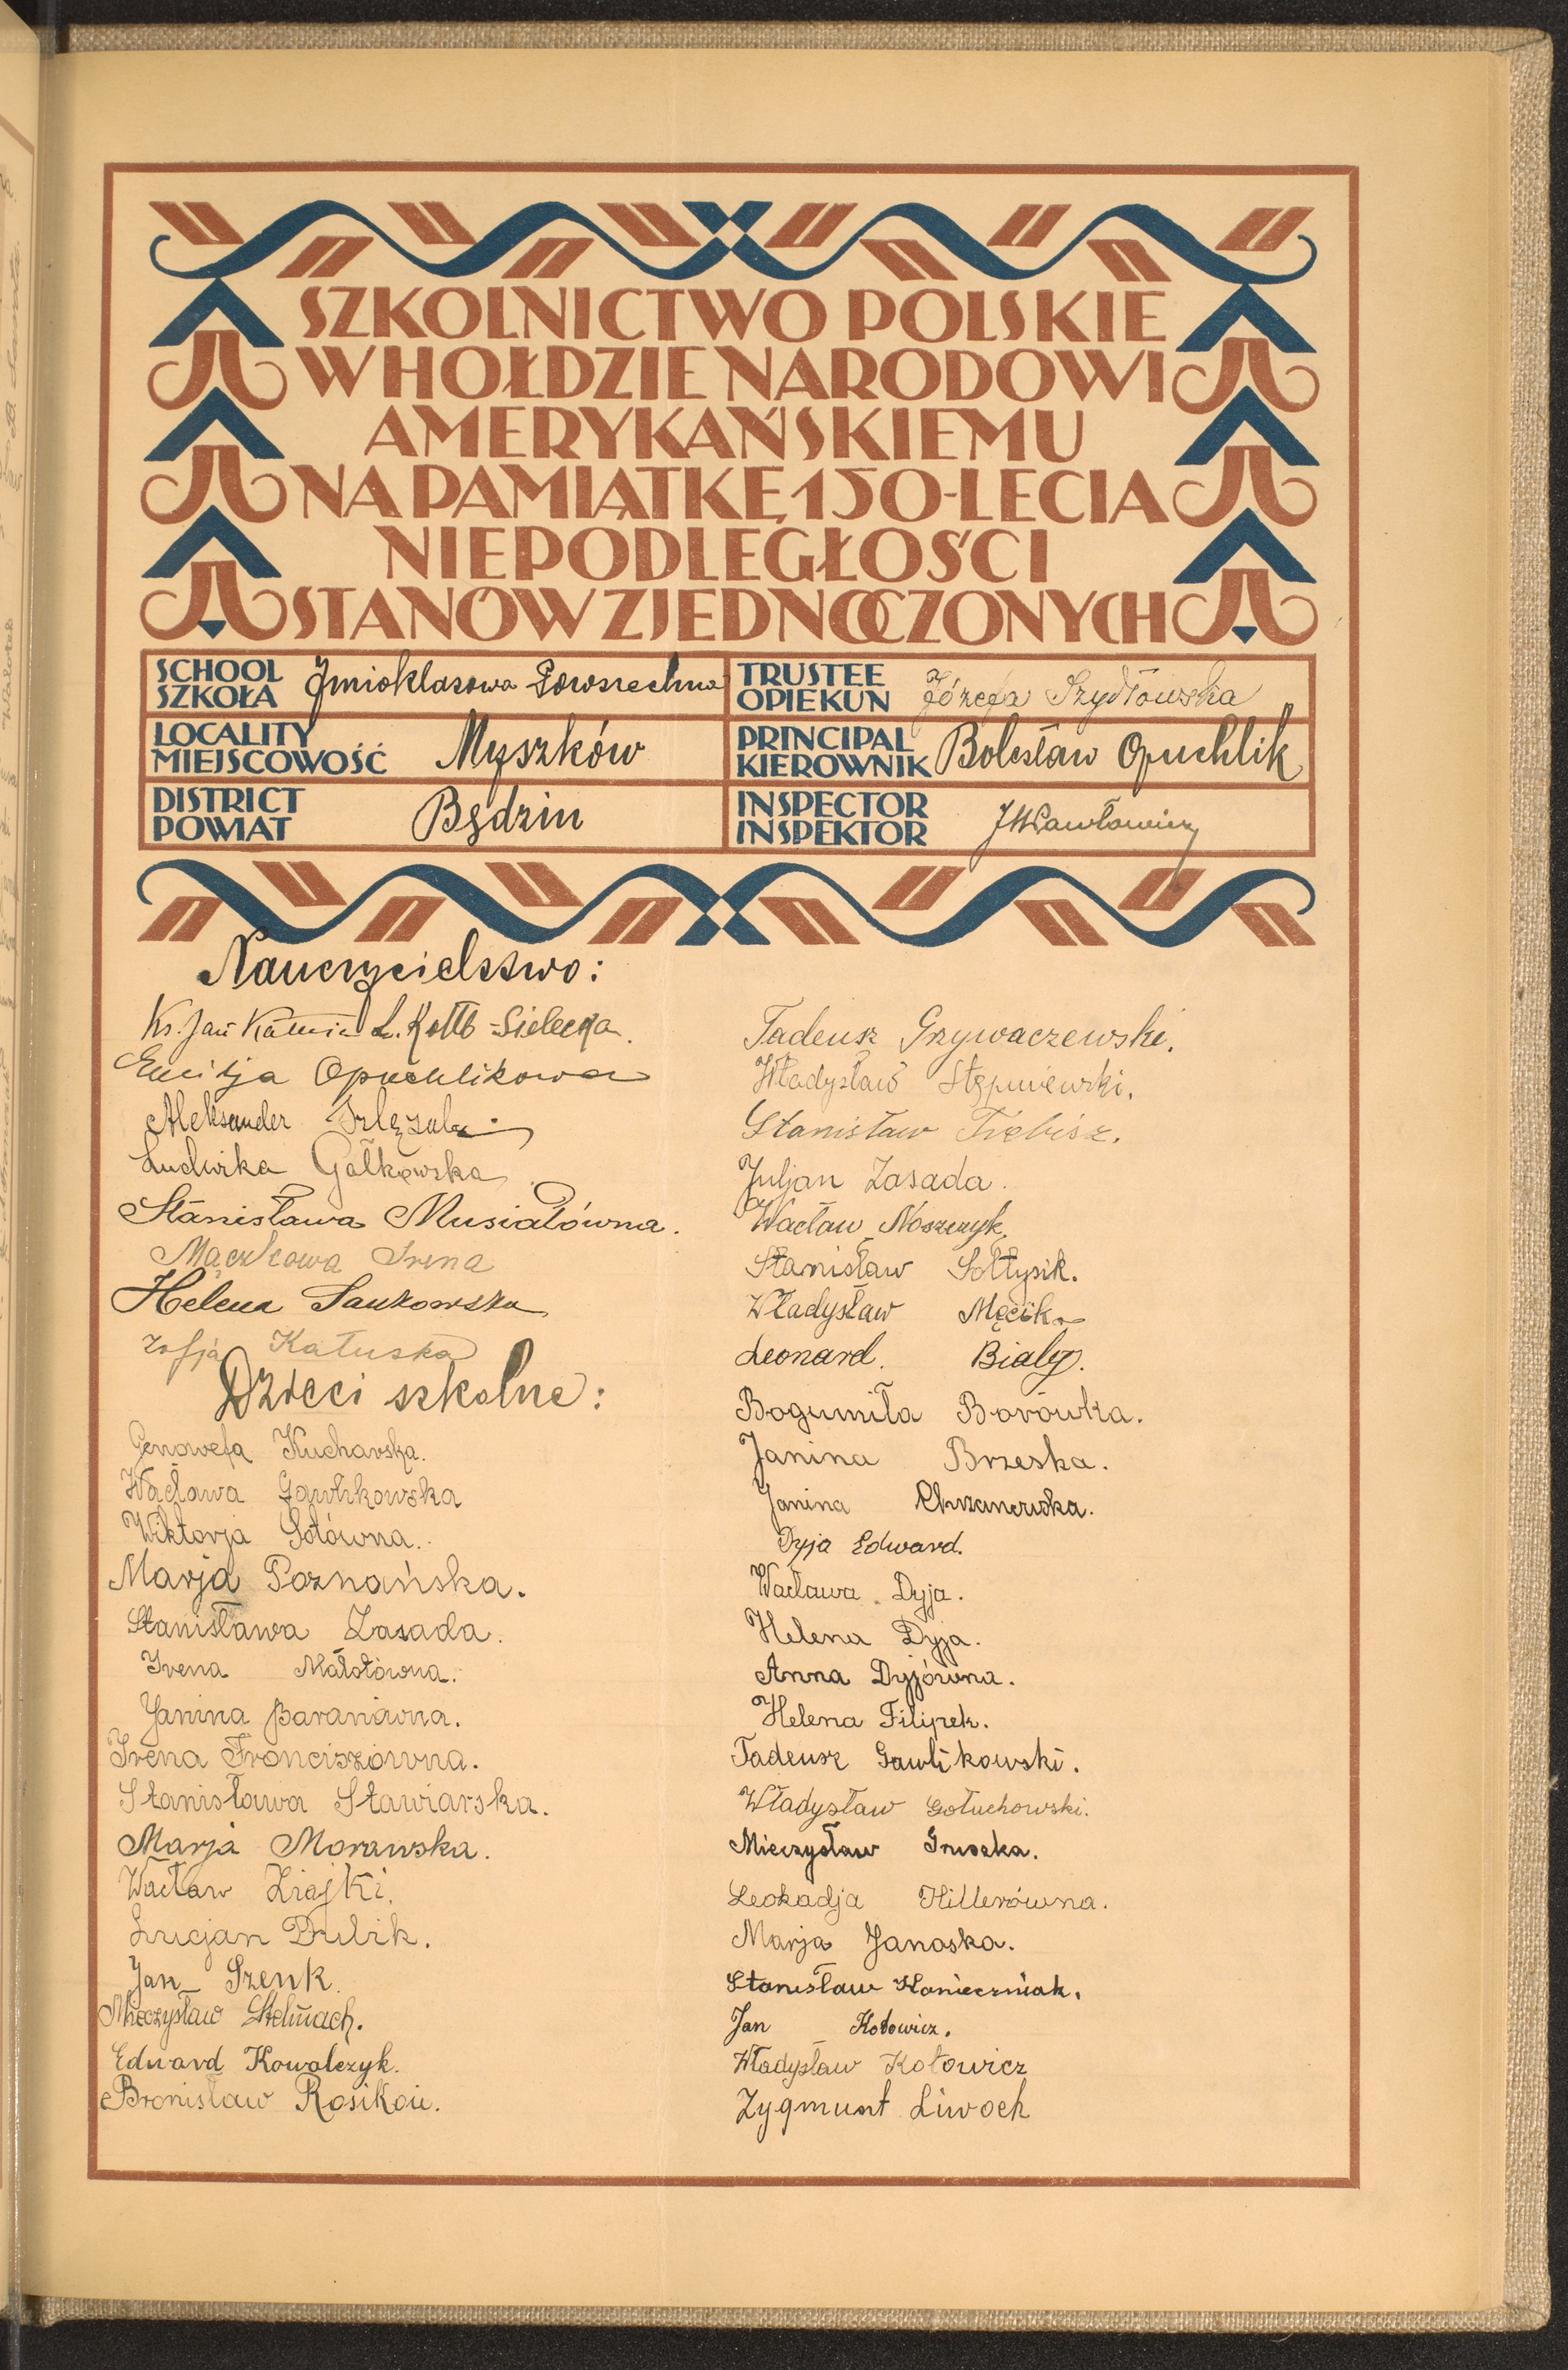 SZKOLNICTWO POLSKIE
W HOŁDZIE NARODOWI
AMERYKAŃSKIEMU
NA PAMIĄTKĘ 150-LECIA
NIEPODLEGŁOŚCI
STANÓW ZJEDNOCZONYCH
SCHOOL
SZKOŁA 7mioklasowa Powszechna
TRUSTEE
OPIEKUN Józefa Szydłowska
LOCALITY
MIEJSCOWOŚĆ Myszków
PRINCIPAL
KIEROWNIK Bolesław Opuchlik
DISTRICT
POWIAT Będzin
INSPECTOR
INSPEKTOR
Nauczycielstwo:
Ks. Jan L. Kottb-Sielecka.
Emilja Opuchlikowa
Aleksander
Ludwika Gałkowska
Stanisława Musiałówna.
Mączkowa Irena
Helena Sankowska
Zofja Katuska
Dzieci szkolne:
Genowefa Kucharska.
Wacława Gawlikowska
Wiktorja Sołówna.
Marja Poznańska.
Stanisława Zasada.
Irena Małotówna.
Janina Baranówna.
Irena Franciszówna.
Stanisława Stawiarska.
Marja Morawska.
Wacław Ziajki.
Lucjan Dulik.
Jan Szenk.
Mieczysław Stelmach.
Edward Kowalczyk.
Bronisław Rosikoń.
Tadeusz Grzywaczewski.
Władysław Stępniewski.
Stanisław Trębisz.
Juljan Zasada.
Wacław Noszczyk.
Stanisław Sołtysik.
Władysław Męcik
Leonard. Biały.
Bogumiła Borówka.
Janina Brzeska.
Janina Chrzanowska.
Dyja Edward.
Wacława Dyja.
Helena Dyja.
Anna Dyjówna.
Helena Filipek.
Tadeusz Gawlikowski.
Władysław Gołuchowski.
Mieczysław Gruszka.
Leokadja Hillerówna.
Marja Janoska.
Stanisław Konieczniak.
Jan Kotowicz.
Władysław Kotowicz
Zygmunt Liwoch